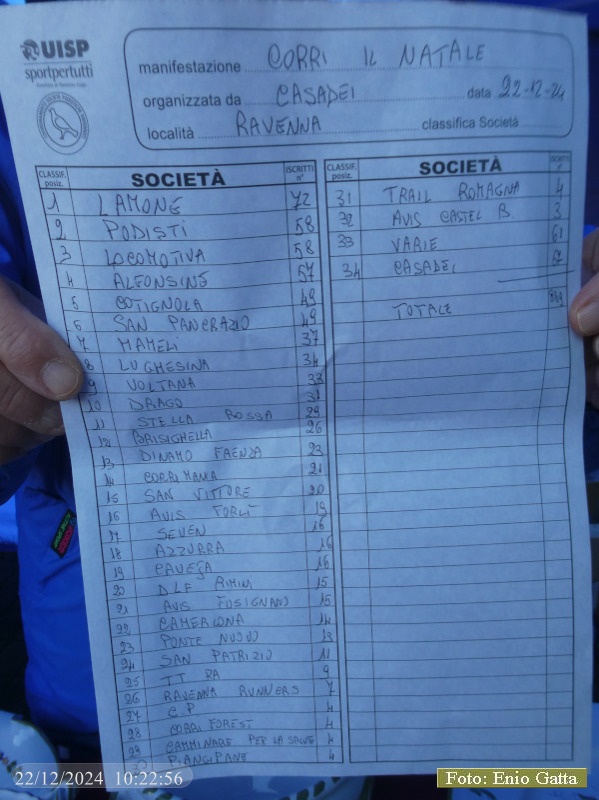 UISP
sportpertutti
manifestazione CORRI IL NATALE
organizzata da CASADEI data 22-12-24
località RAVENNA classifica Società
CLASSIF. posiz. SOCIETÀ ISCRITTI n°
1 LAMONE 72
2 PODISTI 58
3 LOCOMOTIVA 58
4 ALFONSINE 57
5 COTIGNOLA 49
6 SAN PANCRAZIO 49
7 MAMELI 37
8 LUGHESINA 34
9 VOLTANA 33
10 DRAGO 31
11 STELLA ROSSA 29
12 BRISIGHELLA 26
13 DINAMO FAENZA 23
14 CORRI MANIA 21
15 SAN VITTORE 20
16 AVIS FORLÌ 19
17 SEVEN 16
18 AZZURRA 16
19 CAVEJA 16
20 DLF RIMINI 15
21 AVIS FUSIGNANO 15
22 CAMERLONA 14
23 PONTE NUOVO 13
24 SAN PATRIZIO 11
25 TT RA 9
26 RAVENNA RUNNERS 7
27 C P 4
28 CORRI FOREST 4
29 CAMMINARE PER LA SALUTE 4
30 PIANGIPANE 4
CLASSIF. posiz. SOCIETÀ ISCRITTI n°
31 TRAIL ROMAGNA 4
32 AVIS CASTEL B. 3
33 VARIE 61
34 CASADEI
TOTALE
22/12/2024 10:22:56
Foto: Enio Gatta